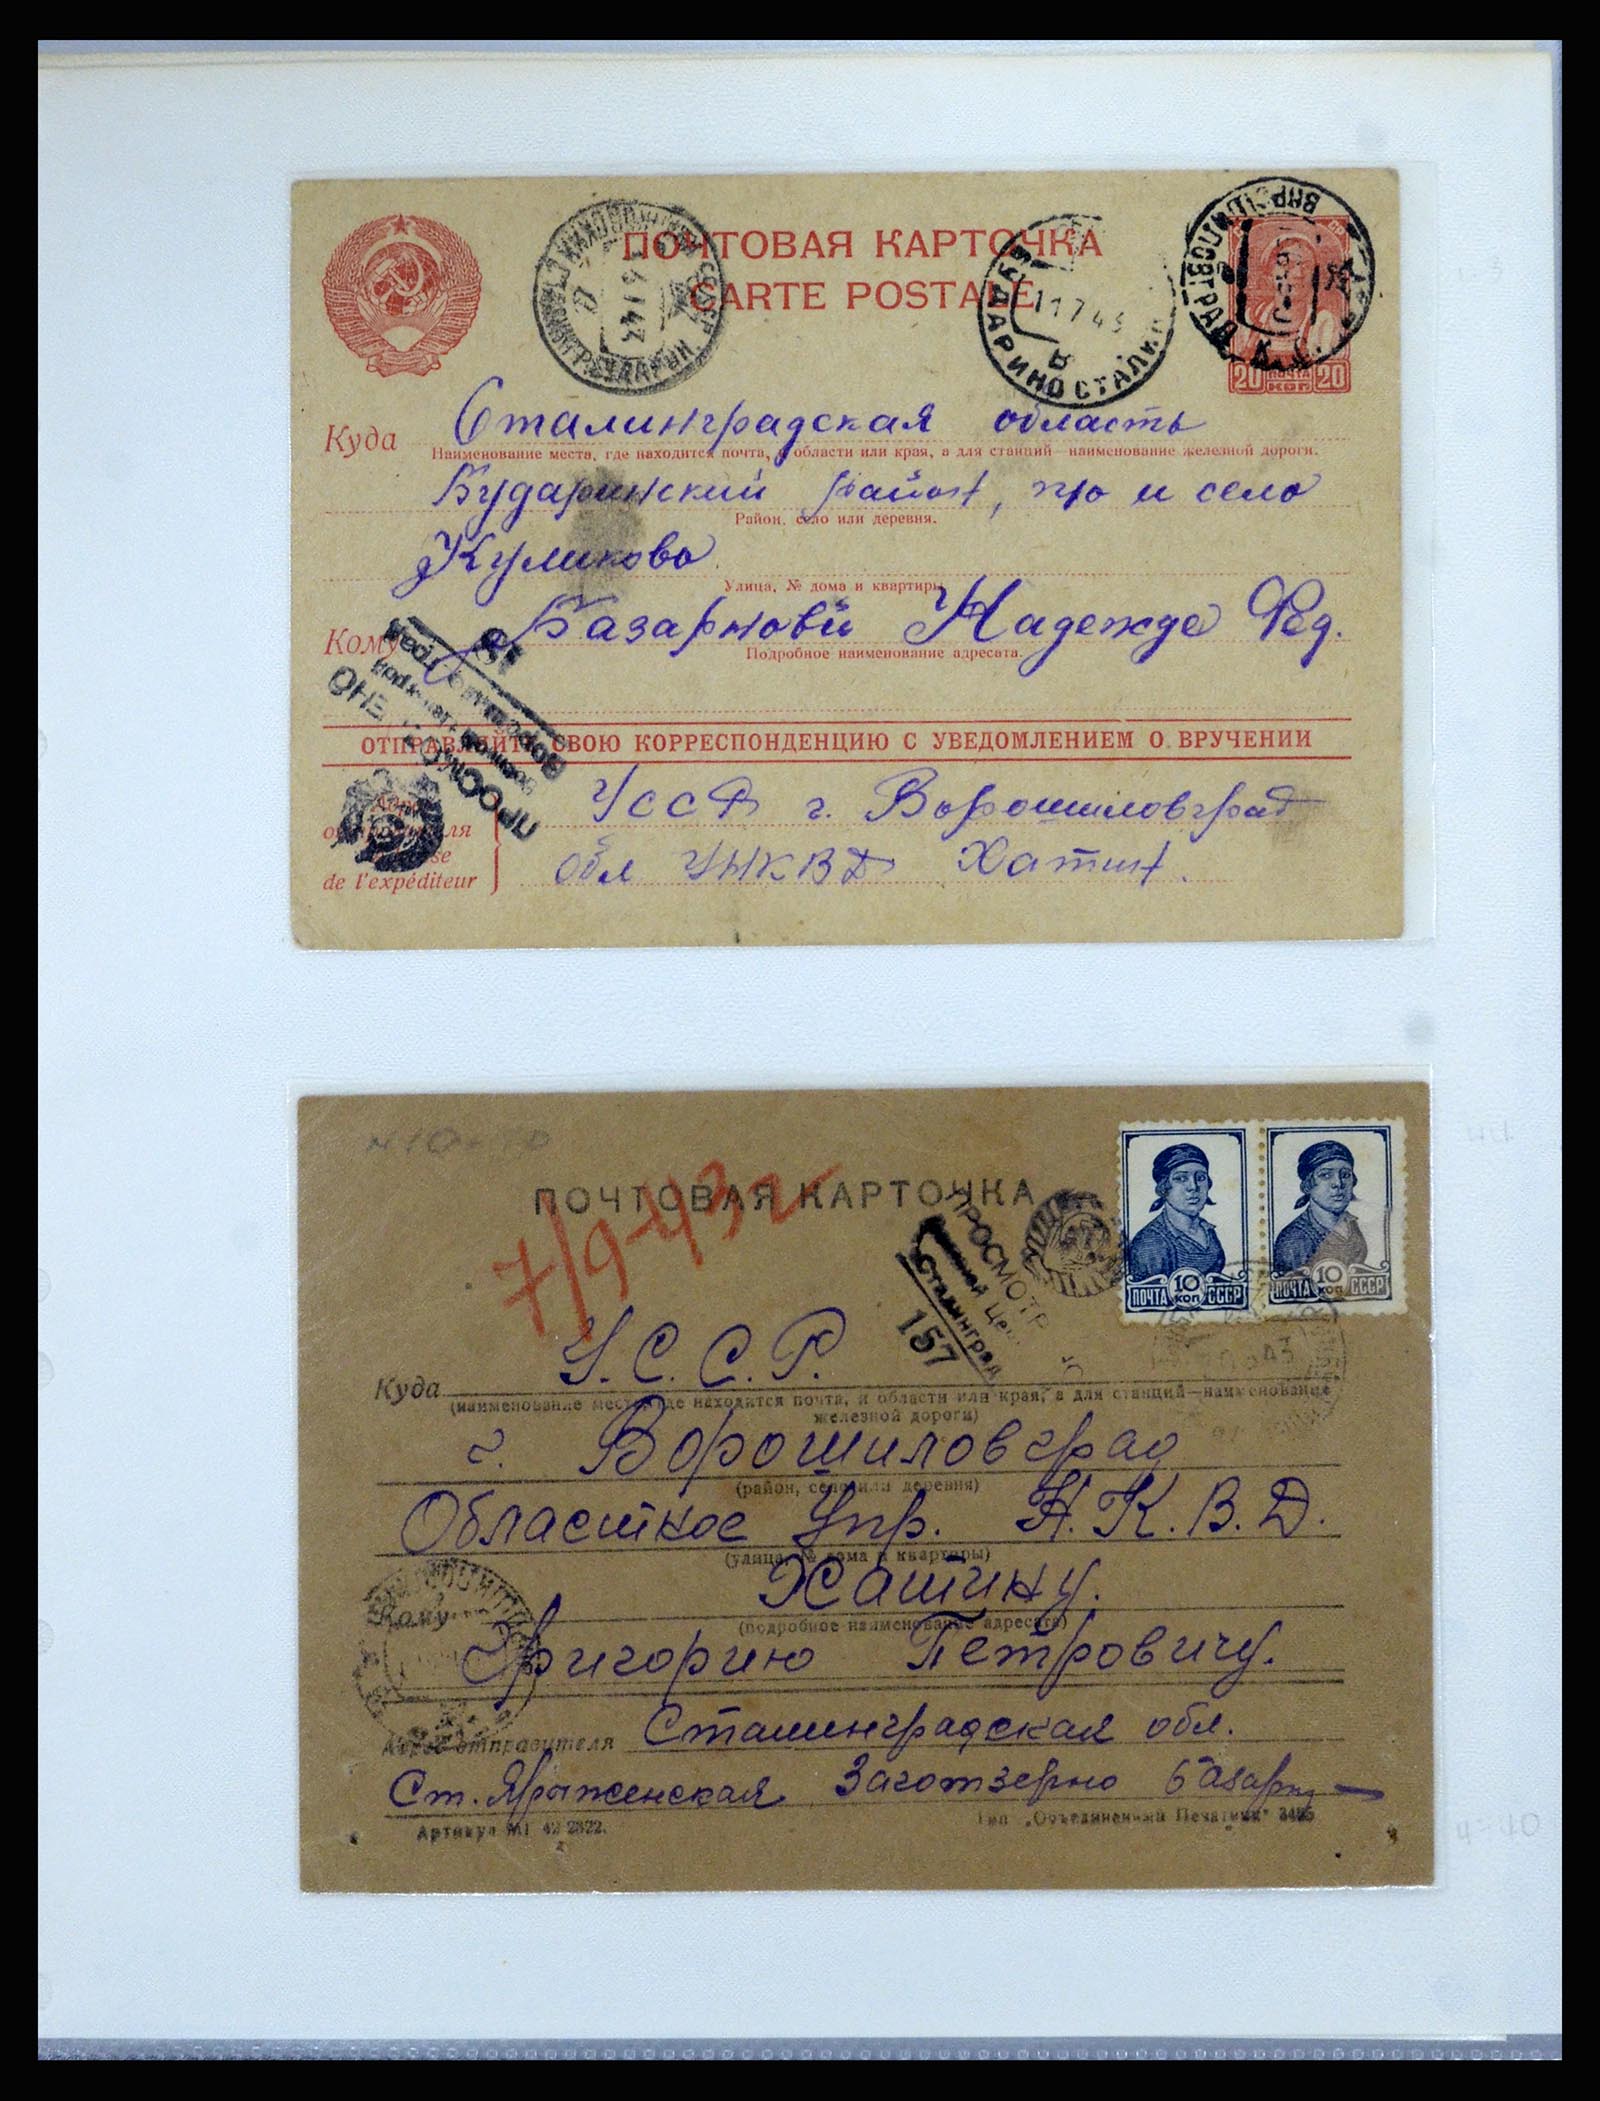 ПОЧТОВАЯ КАРТОЧКА
CARTE POSTALE
11 7 43
20 ПОЧТА КОП 20
Куда Сталинградская область
Наименование места, где находится почта, и области или края, а для станций—наименование железной дороги.
Бударинский район, п/о и село
Район, село или деревня.
Куликово
Улица, № дома и квартиры
Кому Казарновй Надежде Фед.
Подробное наименование адресата.
18
ПРОСМОТРЕНО
ОТПРАВЛЯЙТЕ СВОЮ КОРРЕСПОНДЕНЦИЮ С УВЕДОМЛЕНИЕМ О ВРУЧЕНИИ
УССР г. Ворошиловград
Обл УНКВД Хатин.
de l'expéditeur
ПОЧТОВАЯ КАРТОЧКА
7/9-43г
ПРОСМОТР
Сталинград
157
10 КОП ПОЧТА СССР
10 КОП ПОЧТА СССР
Куда У.С.С.Р.
(наименование места, где находится почта, и области или края, а для станций—наименование
железной дороги)
г. Ворошиловград
(район, село или деревня)
Областное Упр. Н.К.В.Д.
(улица, № дома и квартиры)
Кому Хатину.
(подробное наименование адресата)
Григорию Петровичу.
Адрес отправителя Сталинградская обл.
Ст. Ярыженская Заготзерно
Артикул МТ 42 2822.
Тип „Объединенный Печатник" 3485